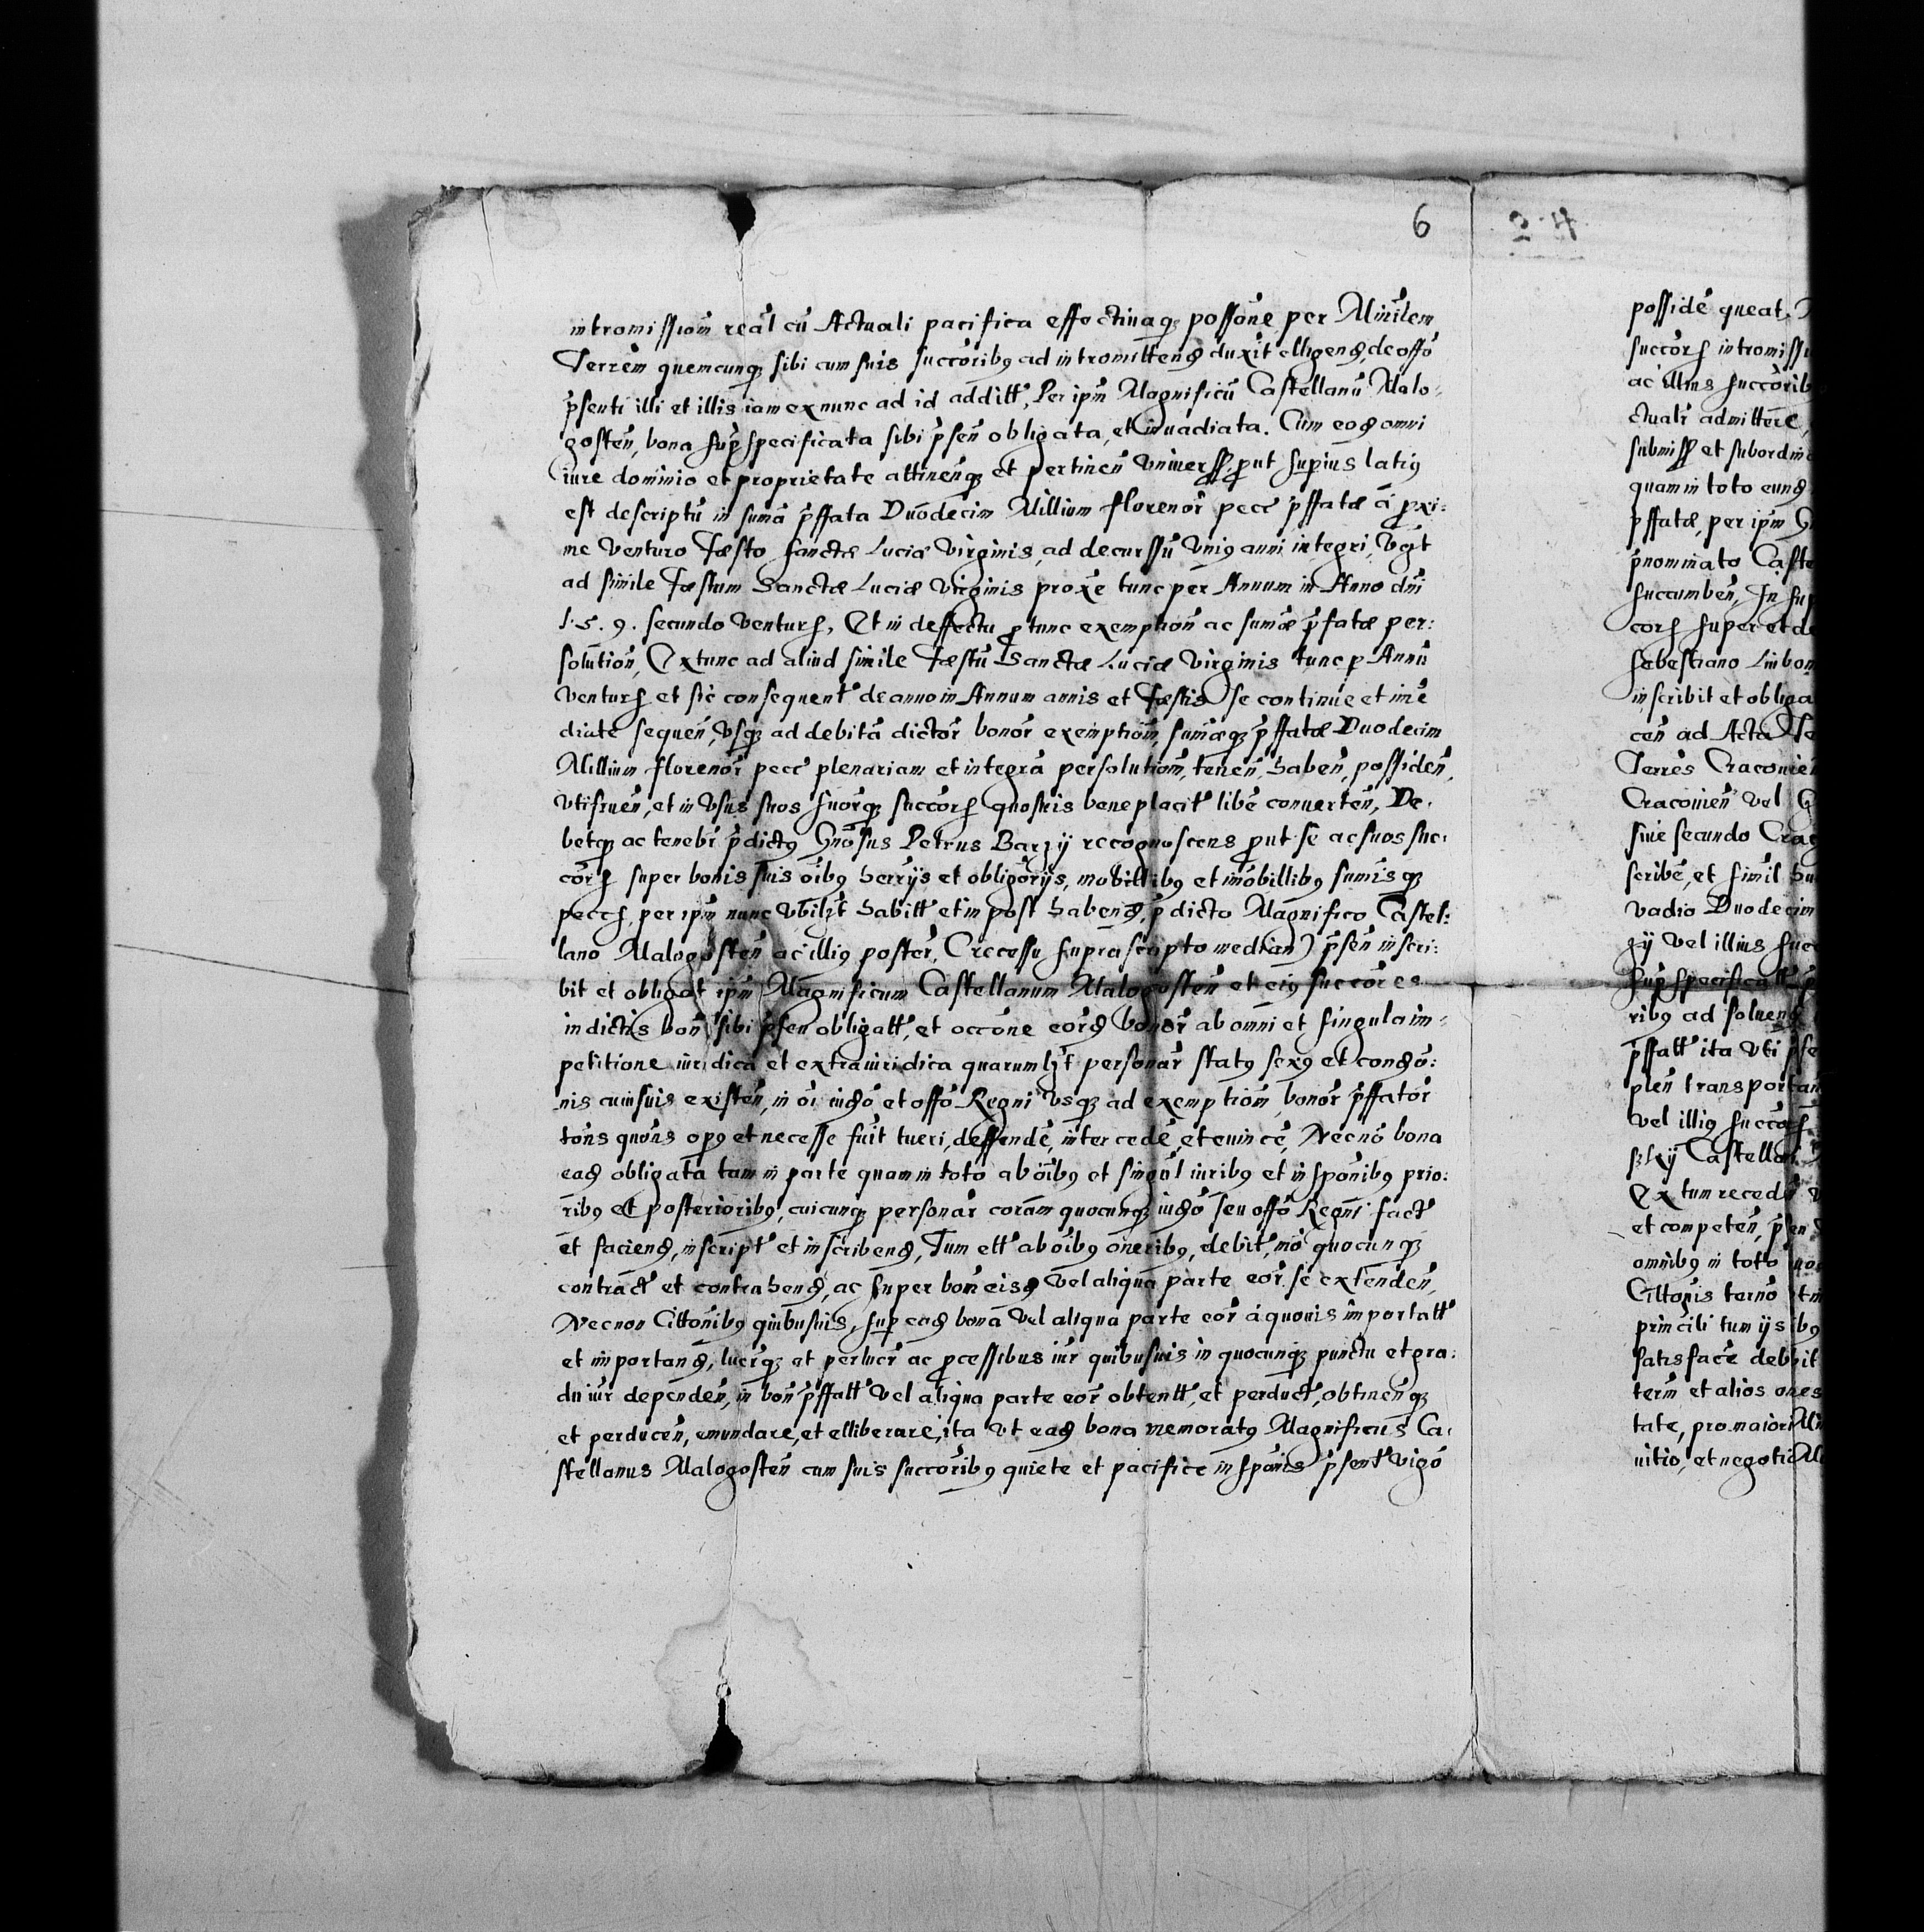 6
intromissiom̄ real̄ cū Actuali pacifica effectiuaq̨ possōne per Minīlem
Terrēm quemcunq̨ sibi cum suis succōribꝰ ad intromittenđ duxit elligenđ, de offō
p̄senti illi et illis iam ex nunc ad id additt̄, Per ip̄m Magnificū Castellanū Malo-
gosten̄, bona sup̱ specificata sibi p̄sen̄ obligata, et inuadiata. Cum eođ omni
iure dominio et proprietate attinen̄q̨ et pertinen̄ vniuerss̄, ꝓut supius latiꝰ
est descriptū in sumā p̄ffata Duōdecim Millium florenor̄ pecc̄ p̄ffatæ ā ꝓxi:
me venturo Fæsto sanctæ Luciæ virginis, ad decurssū vniꝰ anni integri, vꝫt
ad simile Fæstum Sanctæ Luciæ virginis proxe tunc per Annum in Anno dn̄i
1.5.9. secundo ventur̄, Et in deffectu ꝓ tunc exemption̄ ac sum̄æ p̄fatæ per:
solution̄, Ex tunc ad aliud simile Fæstū Sanctæ Luciæ virginis tunc p̱ Annū
ventur̄ et sic consequent̄ de anno in Annum annis et Fæstis se continue et im̄e
diate sequen̄, vsq̨ ad debitā dictor̄ bonor̄ exemptiom̄, sum̄æq̨ p̄ffatæ Duodecim
Millium florenor̄ pecc̄ plenariam et integrā persolutiom̄, tenen̄, haben̄, possiden̄,
vtifruen̄, et in vsus suos suorq̨ succōr̄ quosuis beneplacit̄ libe conuerten̄, De-
betq̨ ac tenebr̄ p̄dictꝰ Gn̄osus Petrus Barzy recognoscens ꝓut se ac suos suc-
cōr̄ super bonis suis ōibꝰ herrijs et obligōrijs, mobillibꝰ et im̄obillibꝰ sumīsq̨
pecc̄, per ip̄m nunc vbilꝫt habitt̄ et in post habenđ, p̄dicto Magnifico Castel:
lano Malogosten̄ ac illiꝰ poster̄, (recessu suprascripto median̄) p̄sen̄ inscri:
bit et obligat ip̄m Magnificum Castellanum Malogosten̄ et eiꝰ succōres
in dictis bon̄ sibi p̄sen obligatt̄, et occōne eorđ bonor̄ ab omni et singula im-
petitione iuridica et extraiuridica quarumlꝫt personar̄ statꝰ sexꝰ et conđō:
nis cuiusuis existen̄, in ōi iuđō et offō Regni vsq̨ ad exemptiom̄, bonor̄ p̄ffator̄
tōns quōns opꝰ et necesse fuīt tueri, deffende, intercede, et euince, Necnō bona
eađ obligata tam in parte quam in toto ab ōibꝰ et singul̄ iuribꝰ et inspōnibꝰ prio:
ribꝰ et posterioribꝰ, cuicunq̨ personar̄ coram quocunq̨ iuđō seu offō Regni fact̄
et facienđ, inscript̄ et inscribenđ, Tum ett̄ ab ōibꝰ oneribꝰ, debit̄, mō quocunq̨
contract̄ et contrahenđ, ac super bon̄ eisđ vel aliqua parte eor̄ se extenden̄,
Necnon Cittōnibꝰ quibusuis, sup̱ eađ bona vel aliqua parte eor̄ a quouis importatt̄
et importanđ, lucr̄q̨ at perlucr̄ ac ꝓcessibus iur̄ quibusuis in quocunq̨ punctu et gra:
du iur̄ dependen̄, in bon̄ p̄ffatt̄ vel aliqua parte eor̄ obtentt̄, et perduct̄, obtinen̄q̨
et perducen̄, emundare, et elliberare, ita vt eađ bona memoratꝰ Magnificus Ca-
stellanus Malogosten̄ cum suis succōribꝰ quiete et pacifice inspōnis p̄sent̄ vigō
3·4
posside queat,
succōr̄
ac illius
ctuali admittere,
submiss̄ et
quam in toto eunđ
p̄ffatæ, per ip̄m
p̄nominato
succumben̄, In
cōr̄ super et de
Sebestiano
inscribit et
cen̄ ad Acta
Terrēs
Craconien̄ vel
siue secundo
scribe, et simil̄
vadio Duodecim
zy vel illius
sup̱
ribꝰ ad soluenđ
p̄ffatt̄ ita vti
plen̄
vel illiꝰ succōr̄
Ex tum
et competen̄,
omnibꝰ in toto
Cittonis ternō
princili tum ijs
satisface
term̄ et alios
tate, pro maiori
nitio, et